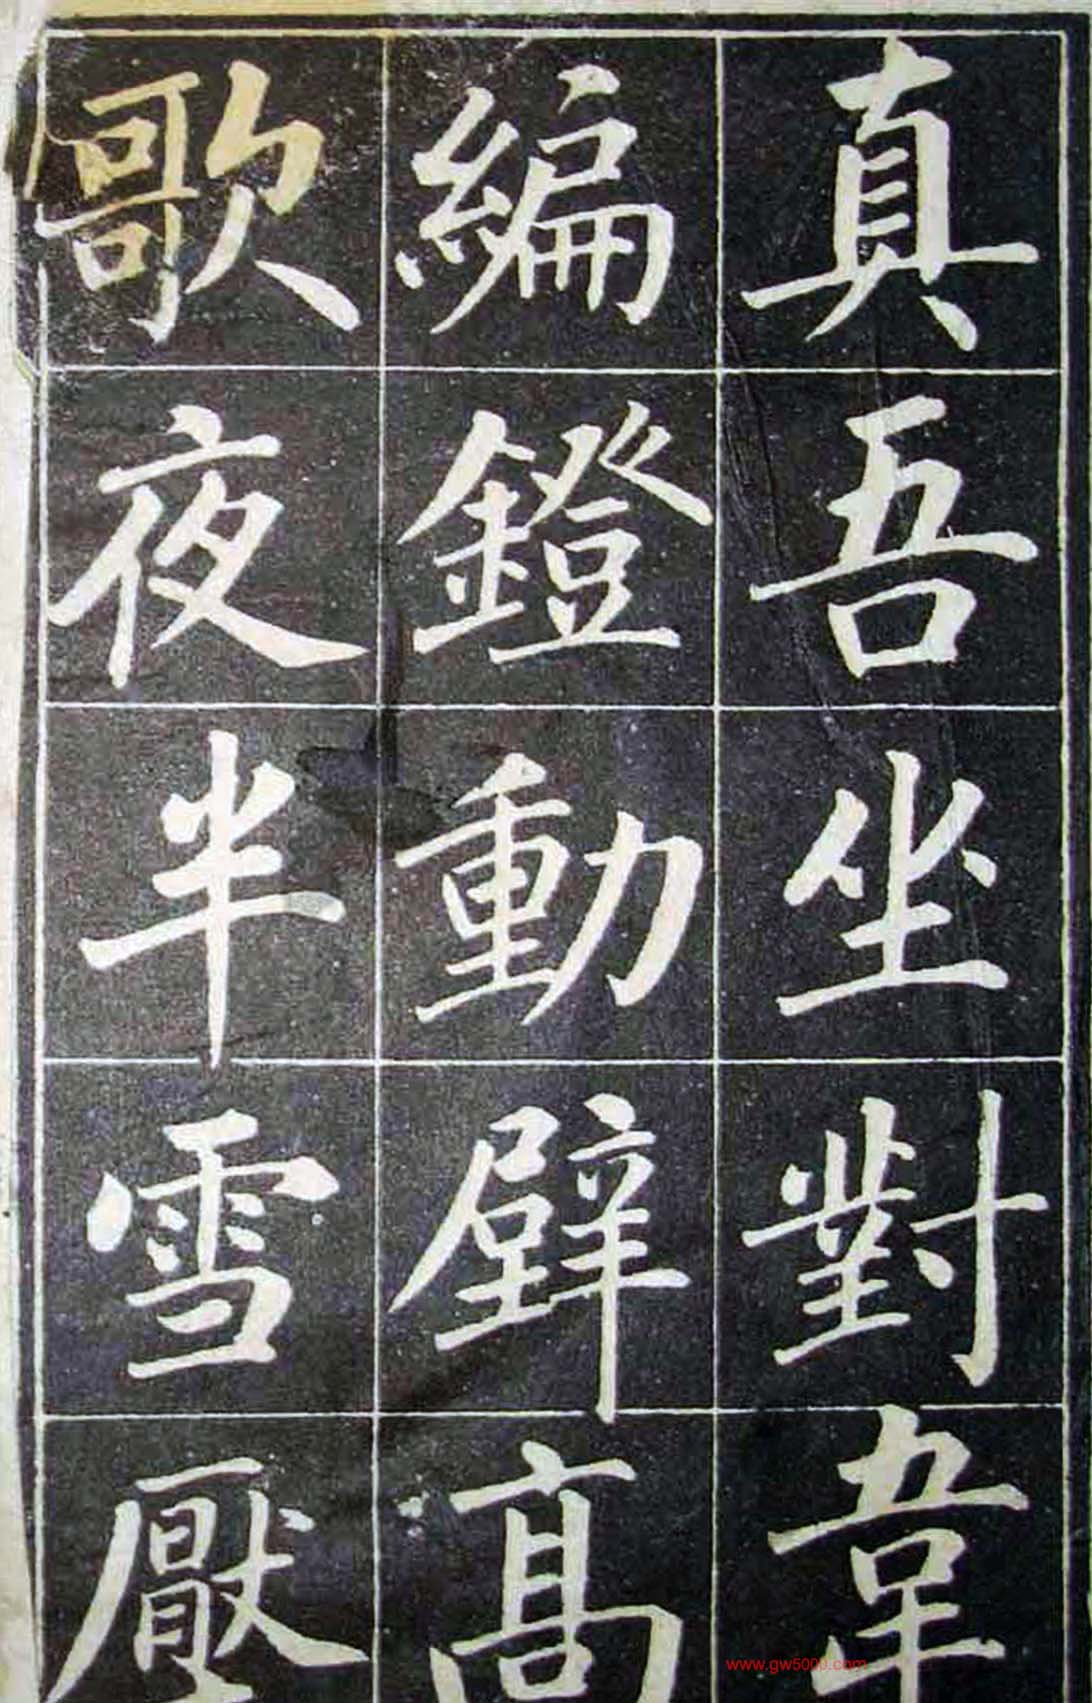 真吾坐對韋
編鐙動壁高
歌夜半雪壓
www.gw5000.com